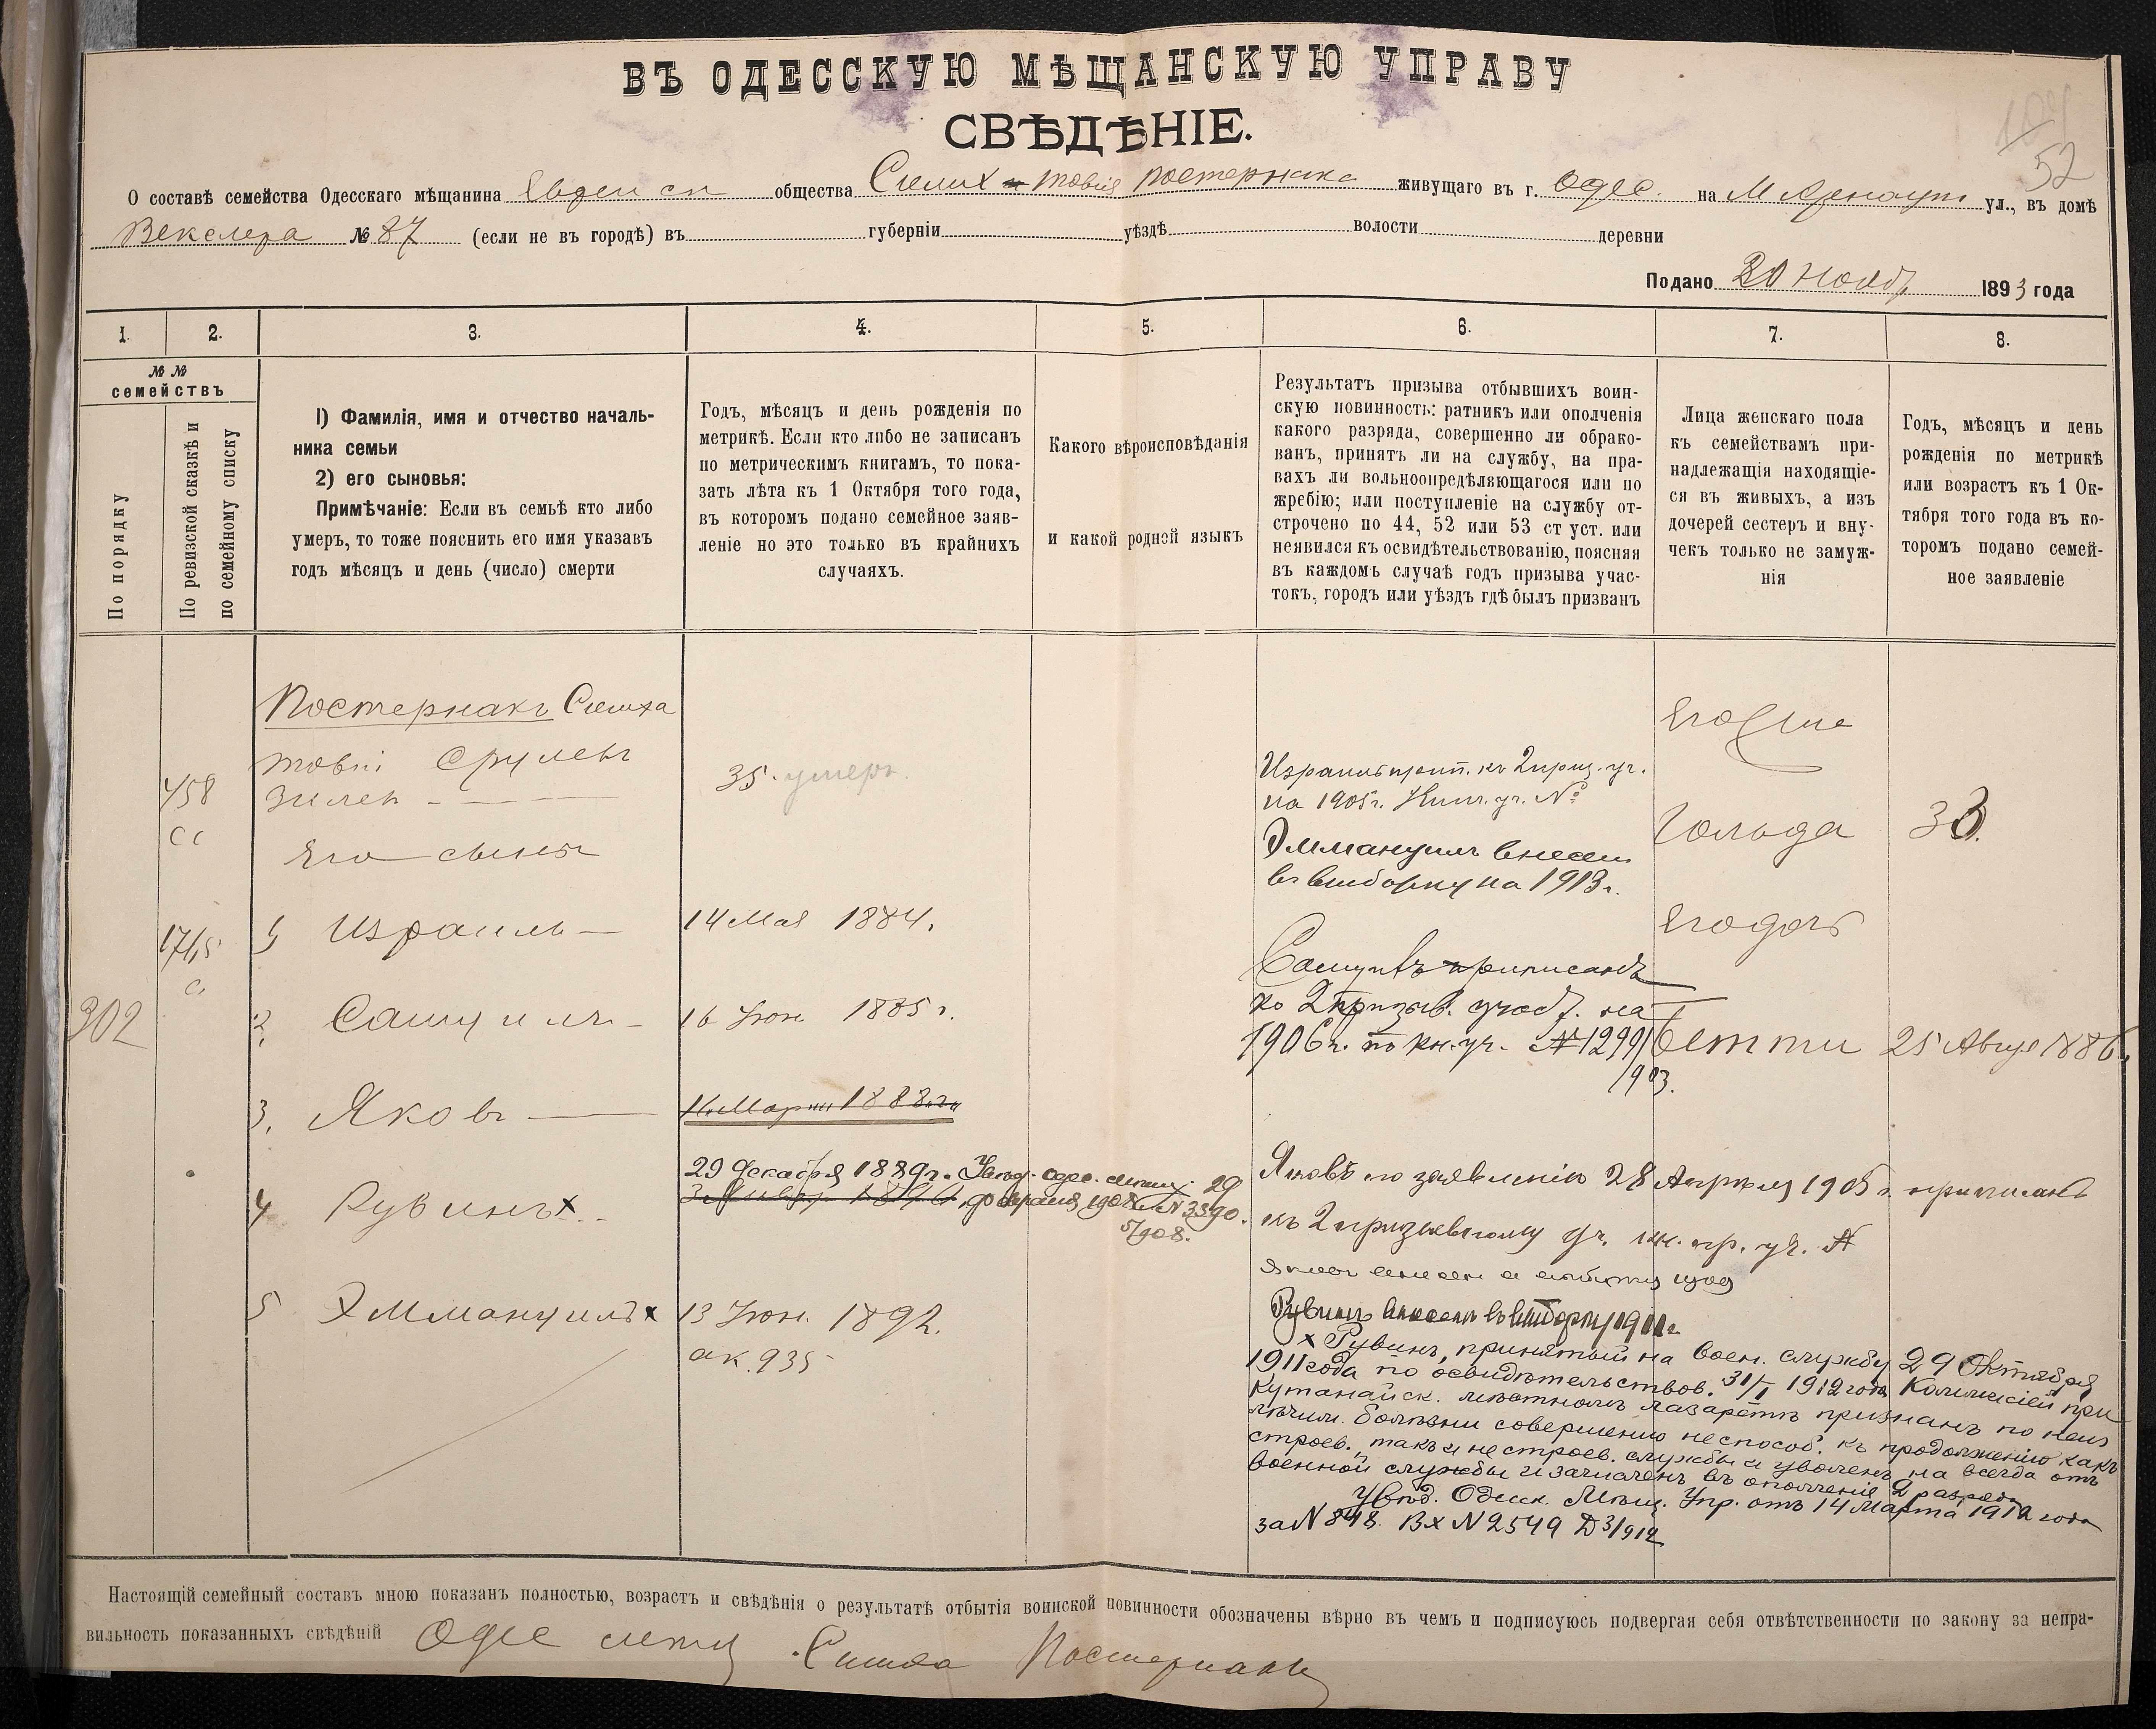 ВЪ ОДЕССКУЮ МѢЩАНСКУЮ УПРАВУ
СВѢДѢНІЕ.
52
О составѣ семейства Одесскаго мѣщанина общества Симх Товія Постернака живущаго въ г. Одес. на М Арнаут ул., въ домѣ
Векслера № 87 (если не въ городѣ) въ губерніи уѣздѣ волости деревни
Подано 20 Нояб 1893 года
1. 2. 3. 4. 5. 6. 7. 8.
№ № семействъ
По порядку
По ревизской сказкѣ и
по семейному списку
1) Фамилія, имя и отчество началь-
ника семьи
2) его сыновья:
Примѣчаніе: Если въ семьѣ кто либо
умеръ, то тоже пояснить его имя указавъ
годъ мѣсяцъ и день (число) смерти
Годъ, мѣсяцъ и день рожденія по
метрикѣ. Если кто либо не записанъ
по метрическимъ книгамъ, то пока-
зать лѣта къ 1 Октября того года,
въ которомъ подано семейное заяв-
леніе но это только въ крайнихъ
случаяхъ.
Какого вѣроисповѣданія
и какой родной языкъ
Результатъ призыва отбывшихъ воин-
скую повинность: ратникъ или ополченія
какого разряда, совершенно ли обрако-
ванъ, принятъ ли на службу, на пра-
вахъ ли вольноопредѣляющагося или по
жребію; или поступленіе на службу от-
строчено по 44, 52 или 53 ст уст. или
неявился къ освидѣтельствованію, поясняя
въ каждомъ случаѣ годъ призыва учас-
токъ, городъ или уѣздъ гдѣ былъ призванъ
Лица женскаго пола
къ семействамъ при-
надлежащія находящіе-
ся въ живыхъ, а изъ
дочерей сестеръ и вну-
чекъ только не замуж-
нія
Годъ, мѣсяцъ и день
рожденія по метрикѣ
или возрастъ къ 1 Ок-
тября того года въ ко-
торомъ подано семей-
ное заявленіе
302
458
сс
1715
с
Постернакъ Симха
Товій Срулевъ
Зилен
Его сыновя
1 Израиль
2. Самуилъ
3. Яковъ
4 Рувинъ х
5 Эммануилъ х
35. умеръ.
14 Мая 1884.
16 Іюн 1885 г.
16 Мар 1888 г.
29 Декабря 1889 г. Увѣд. одес. мѣщ. 29
3 Январ 1890 февраля 1908 г. N 3390.
5/908.
13 Іюн. 1892.
ак. 935
Израиль прип. къ 2 приз. уч.
на 1905 г. Кн. уч. №
Эммануилъ внесен
въ выборку на 1913 г.
Самуилъ приписанъ
ко 2 призыв. участ. на
1906 г. по кн. уч. № 1299/
1903.
Яковъ по заявленію 28 Апрѣля 1905 г. приписанъ
къ 2 призывному уч. кн. пр. уч. №
Рувинъ внесенъ въ выборку 1911 г.
х Рувинъ, принятый на воен. службу 29 Октября
1911 года по освидѣтельствов. 31/I 1912 года Комиссіей при
Кутаиайск. мѣстномъ лазаретѣ признанъ по неиз
лѣчим. болѣзни совершенно неспособ. къ продолженію какъ
строев., такъ и нестроев. службы и уволенъ на всегда отъ
военной службы и зачисленъ въ ополченіе 2 разряда
Увѣд. Одесск. Мѣщ. Упр. отъ 14 Марта 1912 года
за N 848. Вх N 2549 Д 3/912
Его жина
Гольда 33.
Его доч
Бетти 25 Авгус 1886.
Настоящій семейный составъ мною показанъ полностью, возрастъ и свѣдѣнія о результатѣ отбытія воинской повинности обозначены вѣрно въ чемъ и подписуюсь подвергая себя отвѣтственности по закону за непра-
вильность показанныхъ свѣдѣній Одес Симха Постернакъ